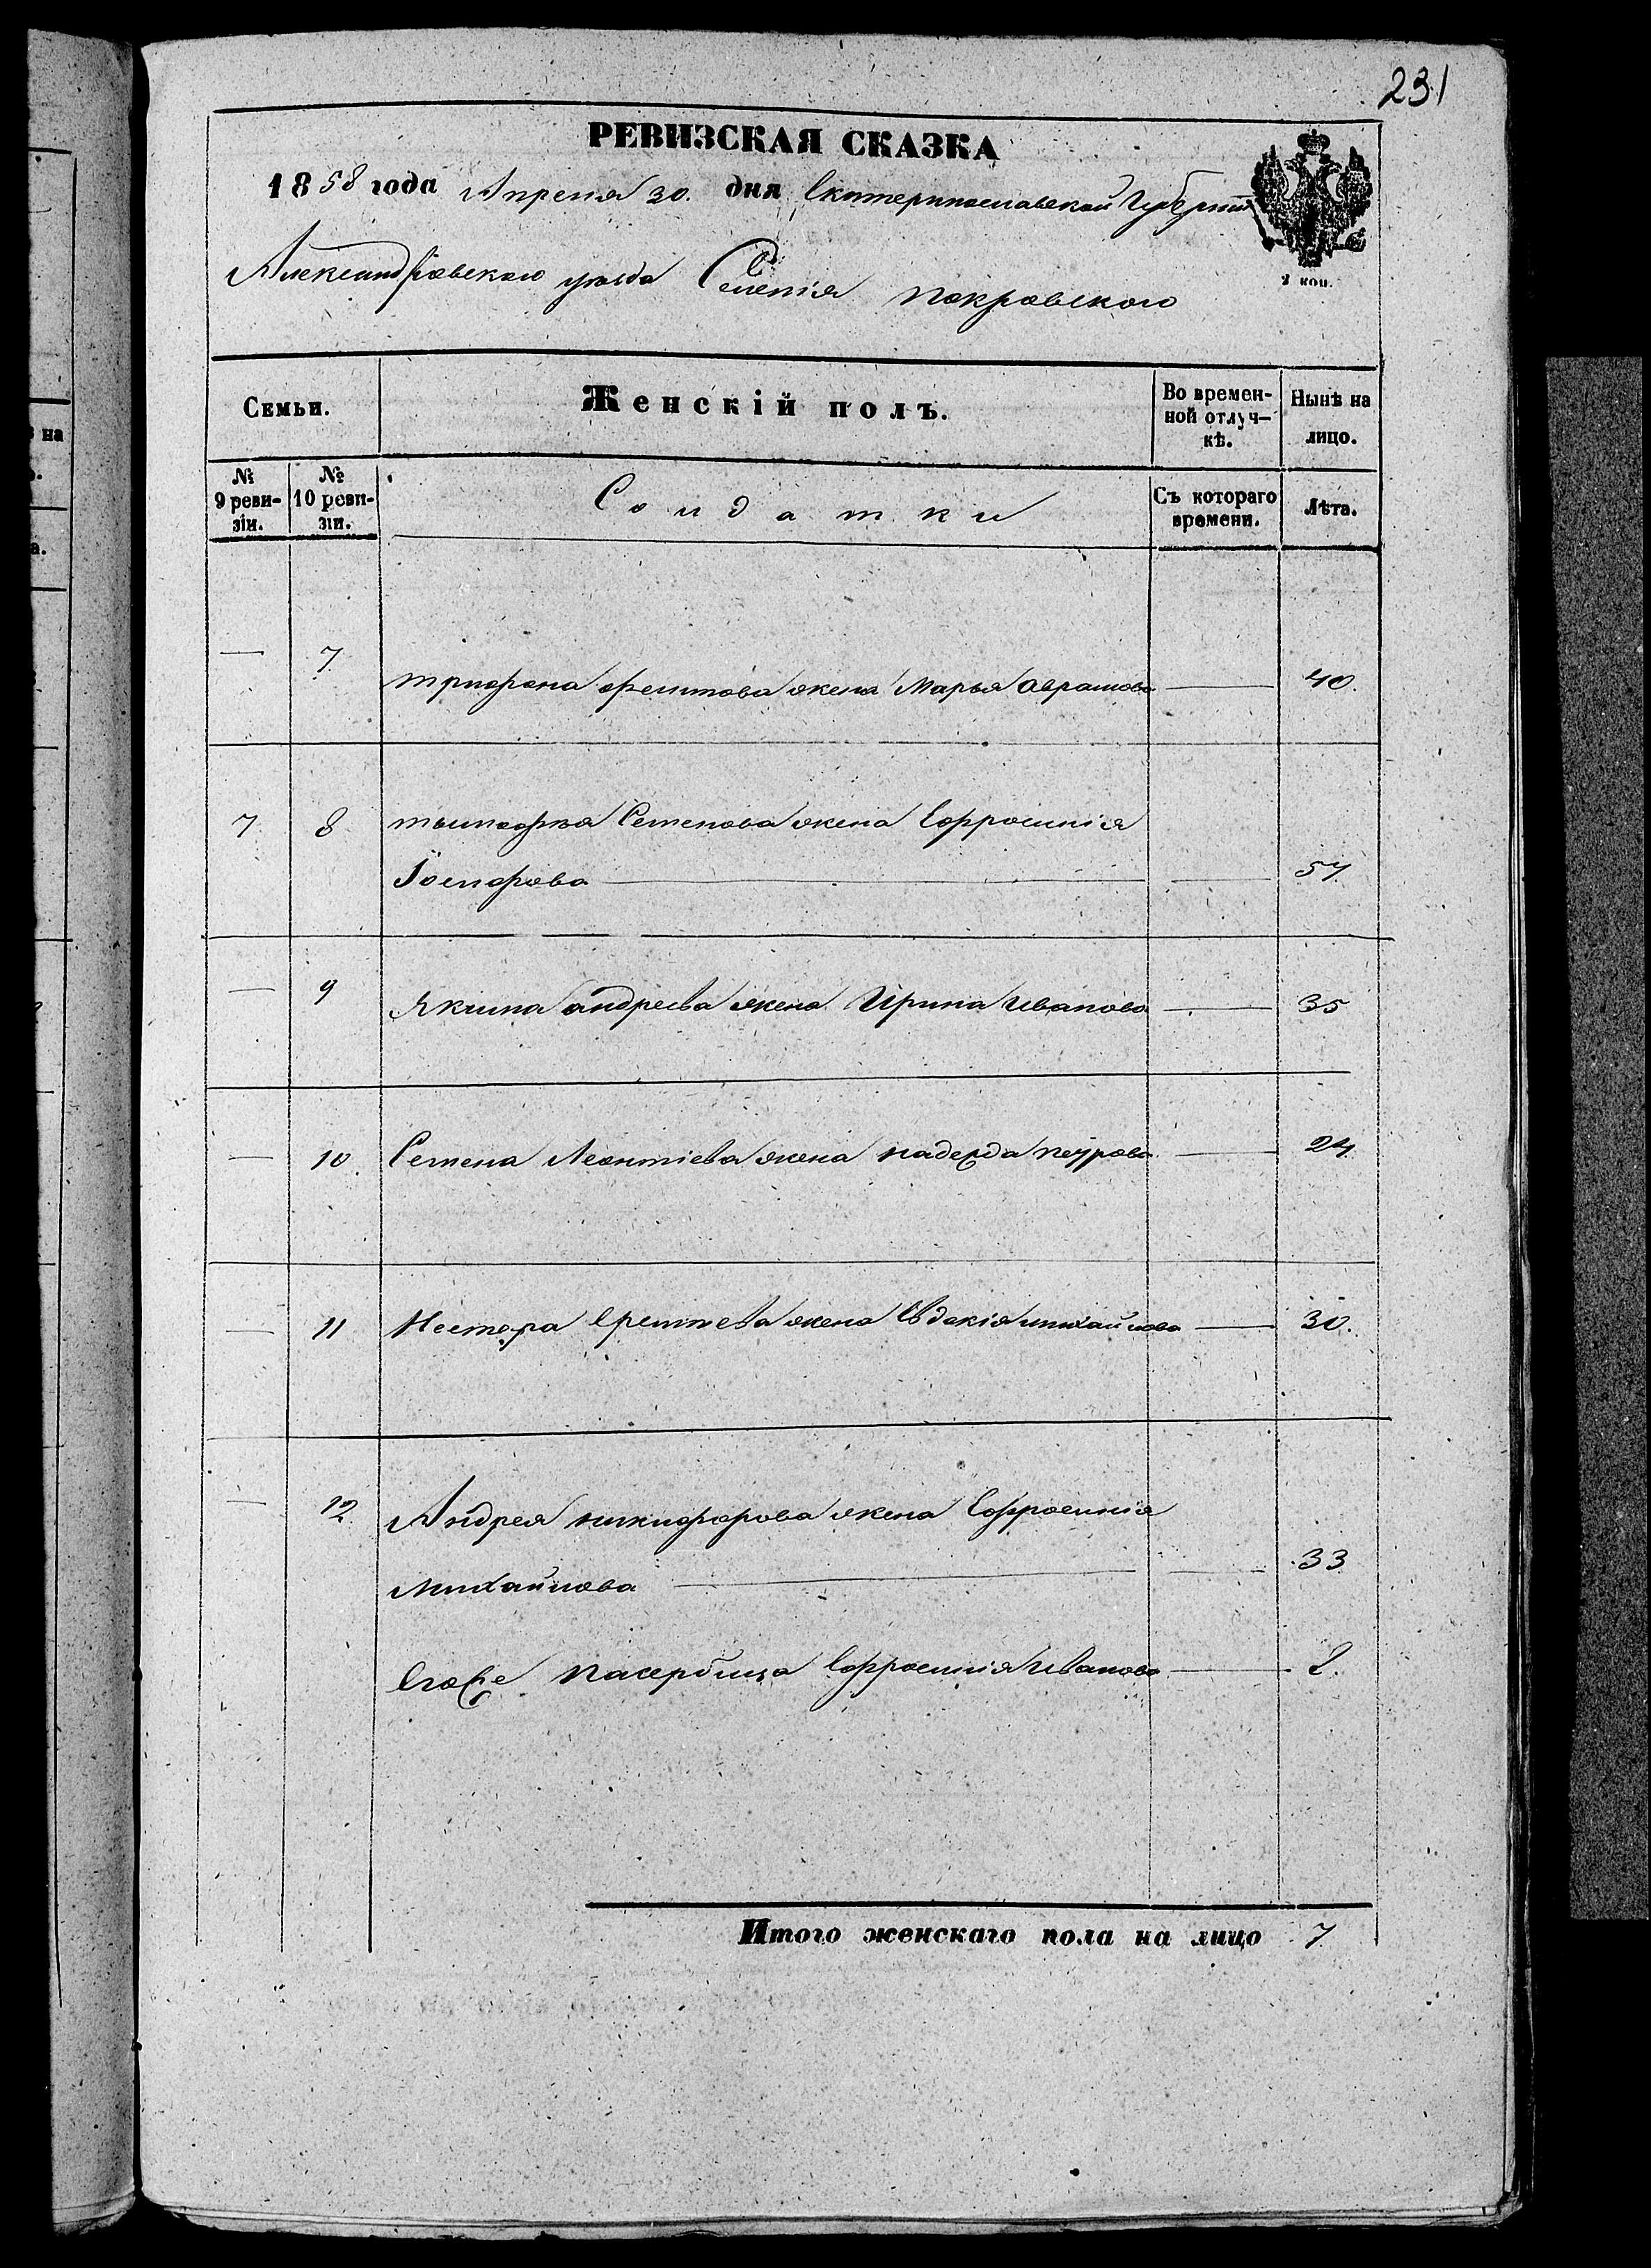 231
РЕВИЗСКАЯ СКАЗКА
1858 года Апреля 30. дня Екатеринославской Губернии
2 коп.
Александровского уезда Селенія Покровского
Семьи. Женскій полъ. Во времен-ной отлуч-кѣ. Нынѣ на лицо.
№ 9 реви-зіи. № 10 реви-зіи. Солдатки Съ котораго времени. Лѣта.
— 7 Трифона Филипова жена Марья Аврамова — 40.
7 8 Тимофея Семенова жена Ефросинія
Іосифова — — 57.
— 9 Якима Андреева жена Ирина Иванова — 35
— 10. Семена Леонтіева жена Надежда Петрова — 24
— 11 Нестера жена Евдокія Михайлова — 30.
— 12. Андрея Никифорова жена Ефросинія
Михайлова — — 33
Егоже пасербица Ефросинія Иванова —
Итого женскаго пола на лицо 7